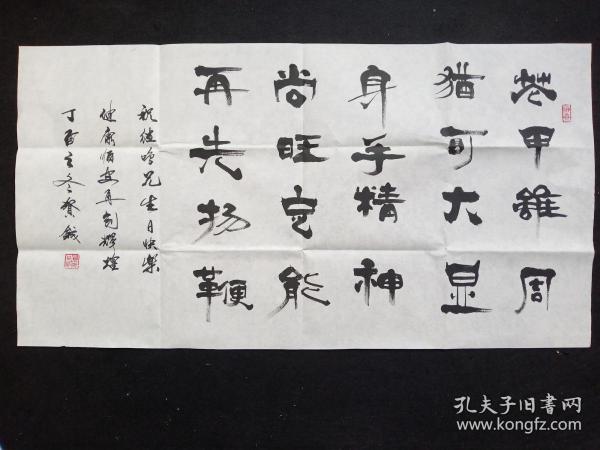 花甲虽周
猶可大显
身手精神
尚旺定能
再先扬鞭
祝维坤兄生日快樂
健康順安再创辉煌
丁酉立冬贺
孔夫子旧书网
www.kongfz.com